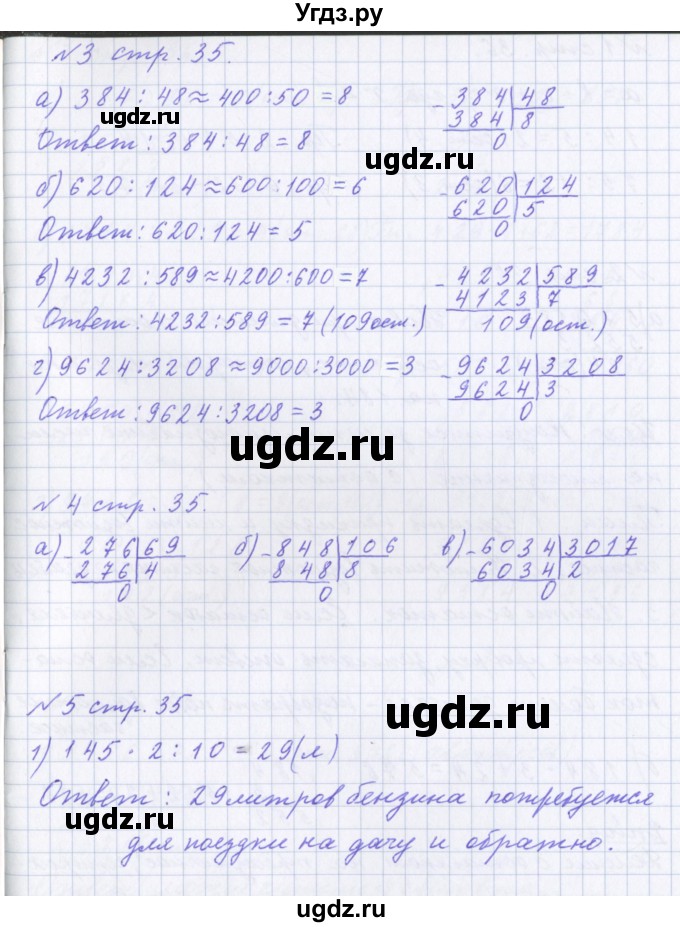 Угдз.ру
№3 стр. 35.
а) 384 : 48 ≈ 400 : 50 = 8
- 384 | 48
384 | 8
0
ugdz.ru
ugdz.ru
Ответ : 384 : 48 = 8
б) 620 : 124 ≈ 600 : 100 = 6
- 620 | 124
620 | 5
0
Ответ : 620 : 124 = 5
в) 4232 : 589 ≈ 4200 : 600 = 7
- 4232 | 589
4123 | 7
109 (ост.)
ugdz.ru
ugdz.ru
Ответ : 4232 : 589 = 7 (109 ост.)
г) 9624 : 3208 ≈ 9000 : 3000 = 3
- 9624 | 3208
9624 | 3
0
Ответ : 9624 : 3208 = 3
ugdz.ru
№ 4 стр. 35.
а) - 276 | 69
276 | 4
0
б) - 848 | 106
848 | 8
0
в) - 6034 | 3017
6034 | 2
0
№ 5 стр. 35
ugdz.ru
1) 145 · 2 : 10 = 29 (л)
Ответ : 29 литров бензина потребуется
ugdz.ru
для поездки на дачу и обратно.
ugdz.ru
ugdz.ru